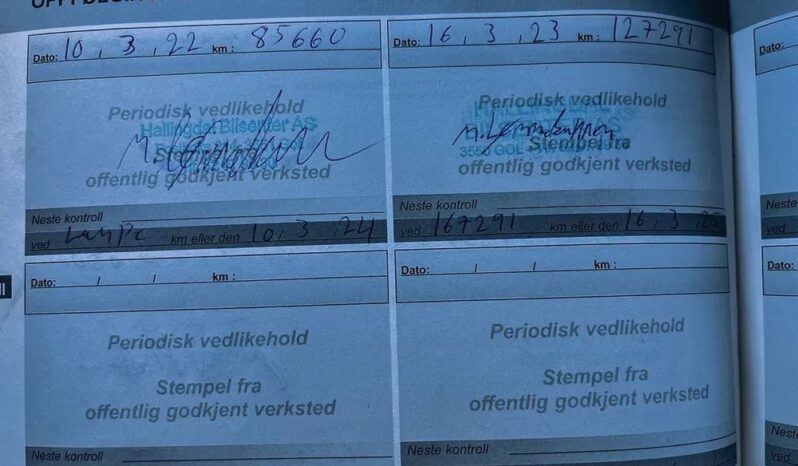 Dato: 10, 3, 22 km: 85660
Periodisk vedlikehold
Hallingdal Bilsenter AS
offentlig godkjent verksted
Neste kontroll
ved Lampe km eller den 10, 3, 24
Dato: 16, 3, 23 km: 127291
Periodisk vedlikehold
3550 GOL
Stempel fra
offentlig godkjent verksted
Neste kontroll
ved 167291 km eller den 16, 3, 25
Dato: / / km:
Periodisk vedlikehold
Stempel fra
offentlig godkjent verksted
Neste kontroll
Dato: / / km:
Periodisk vedlikehold
Stempel fra
offentlig godkjent verksted
Neste kontroll
Dato:
Neste
ved
Dato:
Neste
ved